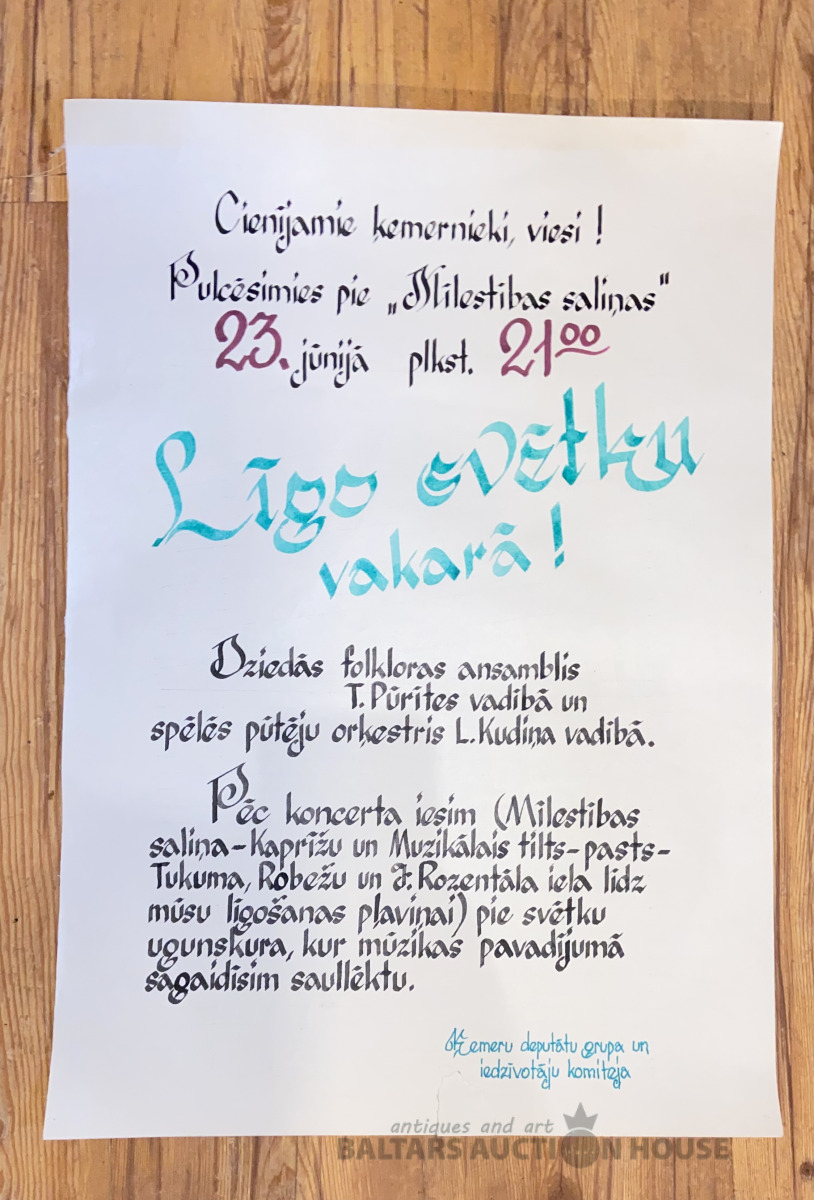 Cienījamie ķemernieki, viesi !
Pulcēsimies pie „Mīlestības saliņas“
23. jūnijā plkst. 21⁰⁰
Līgo svētku
vakarā !
Dziedās folkloras ansamblis
T. Pūrītes vadībā un
spēlēs pūtēju orķestris L. Kudiņa vadībā.
Pēc koncerta iesim (Mīlestības
saliņa-Kaprīžu un Muzikālais tilts-pasts-
Tukuma, Robežu un J. Rozentāla iela līdz
mūsu līgošanas pļaviņai) pie svētku
ugunskura, kur mūzikas pavadījumā
sagaidīsim saullēktu.
Ķemeru deputātu grupa un
iedzīvotāju komiteja
antiques and art
BALTARS AUCTION HOUSE